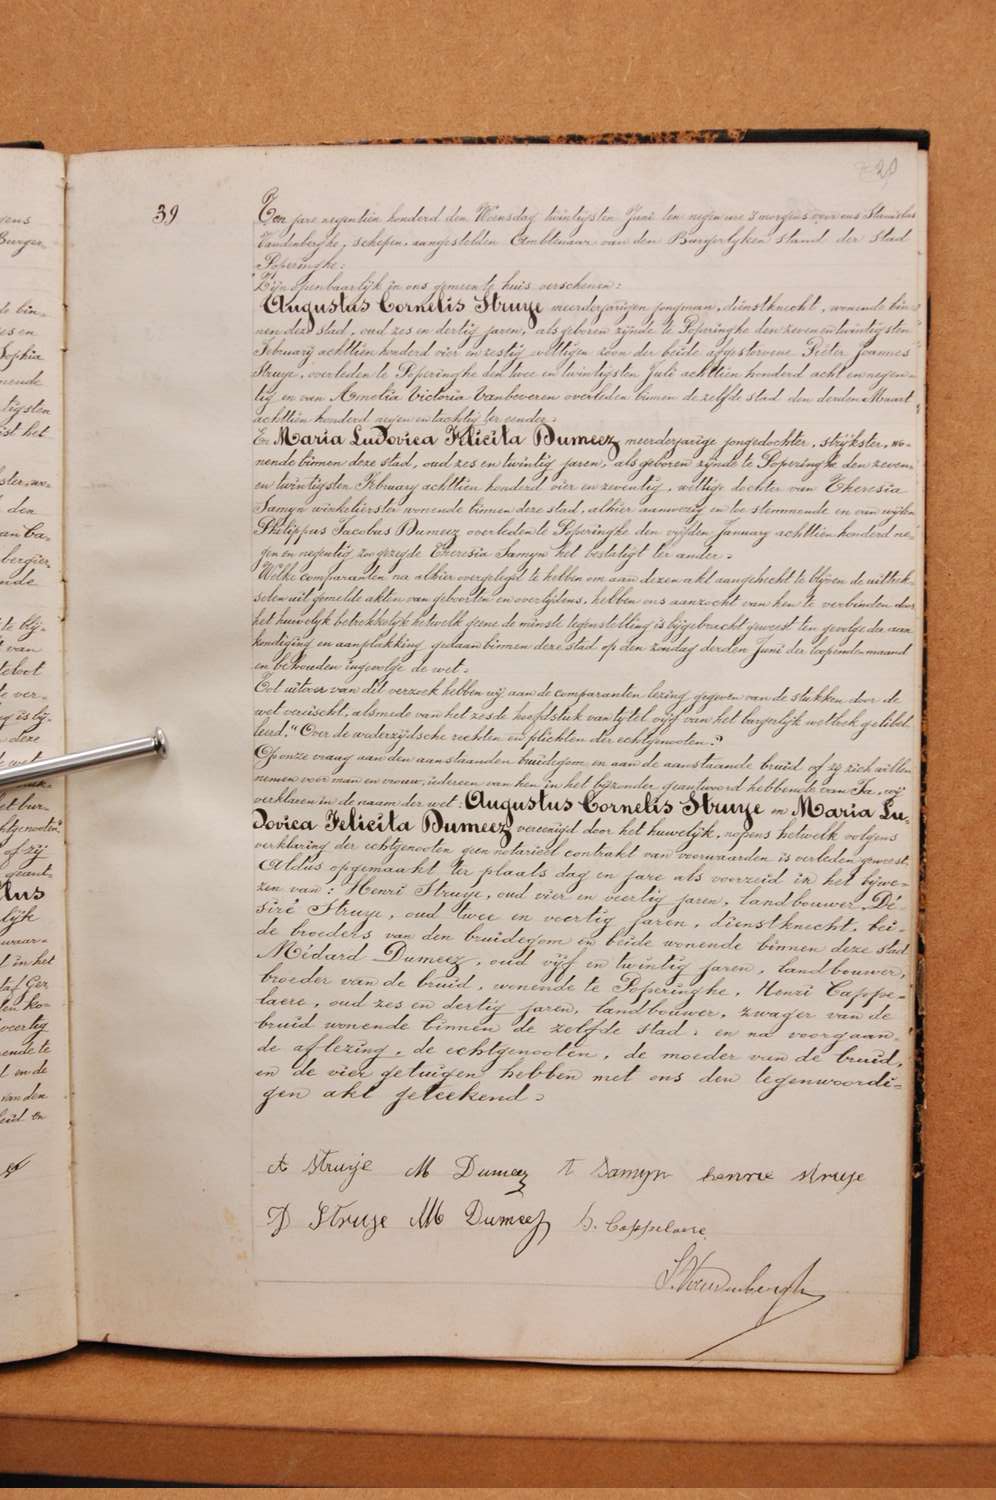 39
Ten jare negentien honderd den Woensdag twintigsten Juni ten negen ure 's morgens voor ons Stanislas
Vandenberghe, schepen, aangestelden Ambtenaar van den Burgerlyken stand der stad
Poperinghe:
Zijn openbaarlijk in ons gemeente huis verschenen:
Augustus Cornelis Struye meerderjarigen jongman, dienstknecht, wonende bin-
nen deze stad, oud zes en dertig jaren, als geboren zijnde te Poperinghe den zeven en twintigsten
February achttien honderd vier en zestig wettigen zoon der beide afgestorvene Pieter Joannes
Struye, overleden te Poperinghe den twee en twintigsten Juli achttien honderd acht en negen-
tig en van Amelia Victoria Vanbeveren overleden binnen de zelfde stad den derden Maart
achttien honderd negen en tachtig ter eender.
En Maria Ludovica Felicita Dumeez meerderjarige jongedochter, strijkster, wo-
nende binnen deze stad, oud zes en twintig jaren, als geboren zijnde te Poperinghe den zeven
en twintigsten February achttien honderd vier en zeventig, wettige dochter van Theresia
Samyn winkelierster wonende binnen deze stad, alhier aanwezig en toestemmende en van wijlen
Philippus Jacobus Dumeez overleden te Poperinghe den vijfden January achttien honderd ne-
gen en negentig, zoo gezegde Theresia Samyn het bestatigt ter ander.
Welke comparanten na alhier overgelegd te hebben om aan dezen akt aangehecht te blijven de uittrek-
selen uit gemelde akten van geboorten en overlijdens, hebben ons aanzocht van hen te verbinden door
het huwelijk betrekkelijk hetwelk geene de minste tegenstelling is bijgebracht geweest ten gevolge der aan
kondiging en aanplakking gedaan binnen deze stad op den zondag derden Juni der loopende maand
en behouden ingevolge de wet.
Tot uitvoer van dit verzoek hebben wij aan de comparanten lezing gegeven van de stukken door de
wet vereischt, alsmede van het zesde hoofdstuk van tytel vijf van het burgerlijk wetboek getitel
leerd: "Over de wederzijdsche rechten en plichten der echtgenooten."
Op onze vraag aan den aanstaanden bruidegom en aan de aanstaande bruid of zij zich willen
nemen voor man en vrouw, iedereen van hen in het bijzonder geantwoord hebbende van Ja, wij
verklaren in de naam der wet: Augustus Cornelis Struye en Maria Lu-
dovica Felicita Dumeez vereenigd door het huwelijk, nopens hetwelk volgens
verklaring der echtgenooten geen notarieel contrakt van voorwaarden is verleden geweest.
Aldus opgemaakt ter plaats dag en jare als voorzeid in het bijwe-
zen van: Henri Struye, oud vier en veertig jaren, landbouwer, Dé-
siré Struye, oud twee en veertig jaren, dienstknecht, bei-
de broeders van den bruidegom en beide wonende binnen deze stad
Médard Dumeez, oud vijf en twintig jaren, landbouwer,
broeder van de bruid, wonende te Poperinghe, Henri Cappe-
laere, oud zes en dertig jaren, landbouwer, zwager van de
bruid wonende binnen de zelfde stad, en na voorgaan-
de aflezing, de echtgenooten, de moeder van de bruid,
en de vier getuigen hebben met ons den tegenwoordi-
gen akt geteekend.
A Struije M Dumeez T Samyn henrie struye
D Struye M Dumeez h. Cappelaere
S. Vandenberghe